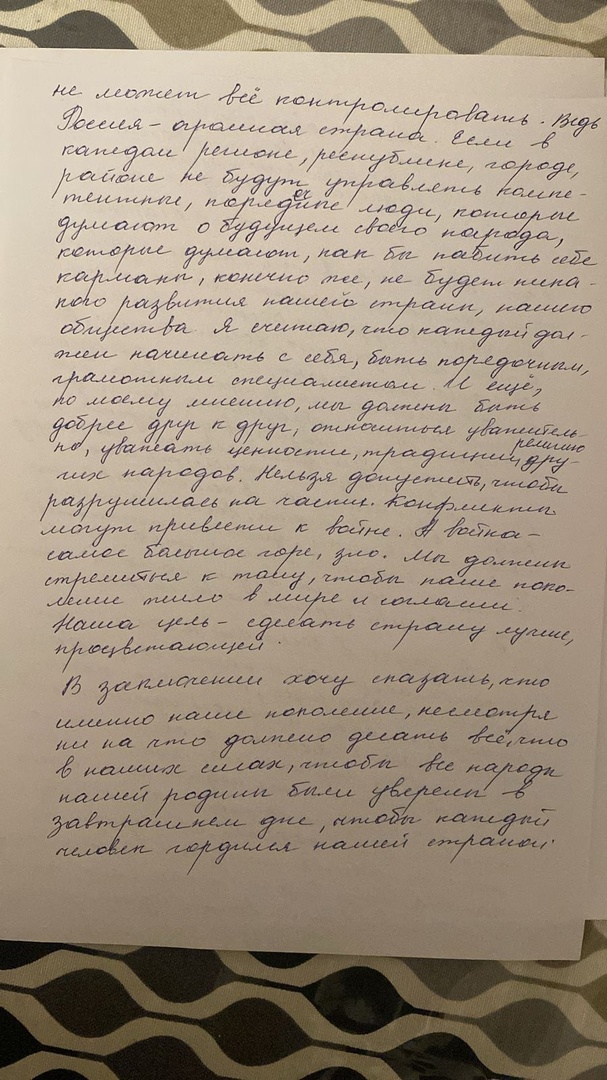 не может всё контролировать. Ведь
Россия - огромная страна. Если в
каждом регионе, республике, городе,
районе не будут управлять компе-
тентные, порядочные люди, которые
думают о будущем своего народа,
которые думают, как бы набить себе
карманы, конечно же, не будет ника-
кого развития нашего страны, нашего
общества Я считаю, что каждый дол-
жен начинать с себя, быть порядочным,
грамотным специалистом. И ещё,
по моему мнению, мы должны быть
добрее друг к другу, относиться уважитель-
но, уважать ценности, традиции, религию дру-
гих народов. Нельзя допустить, чтобы
разрушилась на части. Конфликты
могут привести к войне. А война -
самое большое горе, зло. Мы должны
стремиться к тому, чтобы наше поко-
ление жило в мире и согласии.
Наша цель - сделать страну лучше,
процветающей.
В заключении хочу сказать, что
именно наше поколение, несмотря
ни на что должно делать всё, что
в наших силах, чтобы все народы
нашей родины были уверены в
завтрашнем дне, чтобы каждый
человек гордился нашей страной.